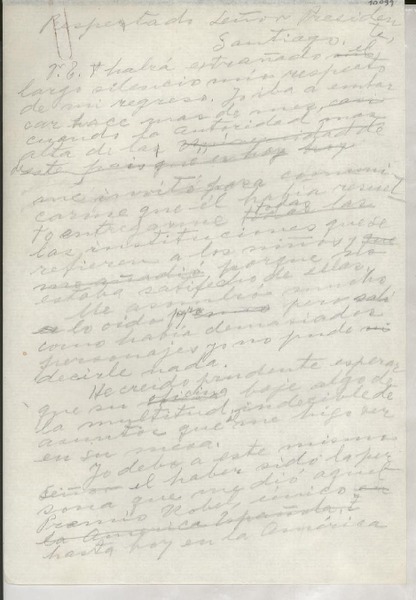 Respetado Señor Presiden
te,
Santiago.
V. E. habrá extrañado el
largo silencio mío respecto
de mi regreso. Iba a embar
car hace mas de mes,
cuando la autoridad mas
alta de la
este país que es hoy
me invitó para comuni
carme que él había resuel
to entregarme todas las
las instituciones que se
refieren a los niños y
porque no
estaba satisfecho de ellas.
Me asombró mucho
lo oído pero salí
como había demasiados
personajes yo no pude
decirle nada.
He creído prudente esperar
que su oficina baje algo de
la multitud indecible de
asuntos que me hizo ver
en su mesa.
Yo debo a este mismo
Señor el haber sido la per
sona que me dió aquel
Premio Nobel único en
la América Española i
hasta hoy en la América